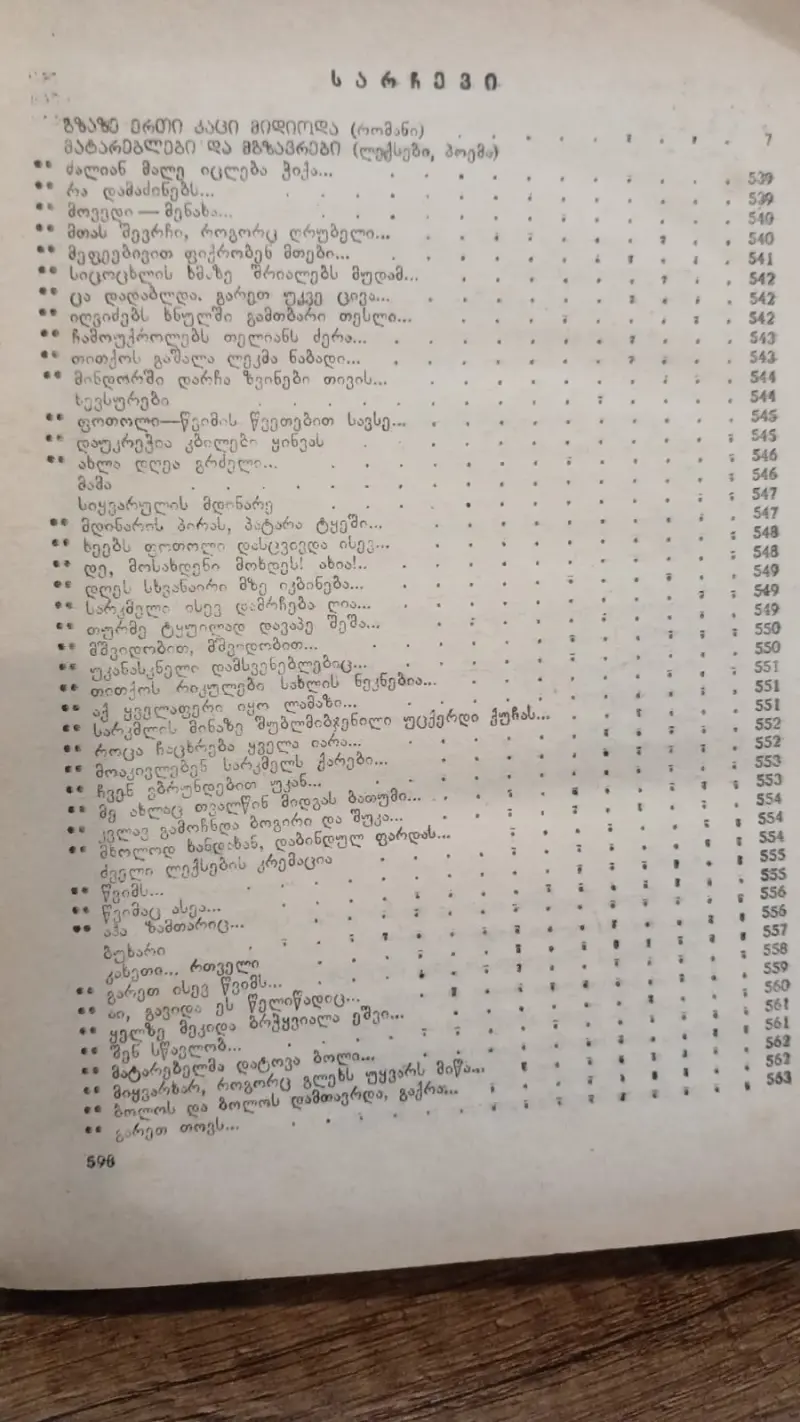 სარჩევი
გზაზე ერთი კაცი მიდიოდა (რომანი) . . . . . . . . 7
მატარებლები და მგზავრები (ლექსები, პოემა)
** ძალიან მალე იცლება ჭიქა... 539
** რა დამაძინებს... 539
** მოვედი — მენახა... 540
** მთას შევრჩი, როგორც ღრუბელი... 540
** მეფეებივით ფიქრობენ მთები... 541
** სიცოცხლის ხმაზე შრიალებს მუდამ... 542
** ცა დადაბლდა. გარეთ უკვე ცივა... 542
** იღვიძებს ხნულში გამთბარი თესლი... 542
** ჩამოუქროლებს თელიანს ძერა... 543
** თითქოს გაშალა ლეკმა ნაბადი... 543
** მინდორში დარჩა ზვინები თივის... 544
ხევსურები 544
** ფოთოლი—წვიმის წვეთებით სავსე... 545
** დაუკრეჭია კბილები ყინვას 545
** ახლა დღეა გრძელი... 546
მამა 546
სიყვარულის მდინარე 547
** მდინარის პირას, პატარა ტყეში... 547
** ხეებს ფოთოლი დასცვივდა ისევ... 548
** დე, მოსახდენი მოხდეს! ახია!.. 548
** დღეს სხვანაირი მზე იკბინება... 549
** სარკმელი ისევ დამრჩება ღია... 549
** თურმე ტყუილად დავაპე შეშა... 549
** მშვიდობით, მშვიდობით... 550
** უკანასკნელი დამსვენებლებიც... 550
** თითქოს რიკულები სახლის ნეკნებია... 551
** აქ ყველაფერი იყო ლამაზი... 551
** სარკმლის მინაზე შუბლმიბჯენილი უცქერდი ქუჩას... 551
** როცა ჩაცხრება ყველა იარა... 552
** მოაკივლებენ სარკმელს ქარები... 552
** ჩვენ ვბრუნდებით უკან... 553
** მე ახლაც თვალწინ მიდგას ბათუმი... 553
** კვლავ გამოჩნდა ბოგირი და შუკა... 554
** მხოლოდ ხანდახან, დაბინდულ ფარდას... 554
ძველი ლექსების კრემაცია 554
** წვიმს... 555
** წვიმაც ასეა... 555
** აჰა ზამთარიც... 556
ბუხარი 556
კახეთი... რთველი 557
** გარეთ ისევ წვიმს... 558
** აი, გავიდა ეს წელიწადიც... 559
** ყელზე მეკიდა ბრჭყვიალა ეშვი... 560
** შენ სწავლობ... 561
** მატარებელმა დატოვა ბოლი... 561
** მიყვარხარ, როგორც გლეხს უყვარს მიწა... 562
** ბოლოს და ბოლოს დამთავრდა, გაქრა... 562
** გარეთ თოვს... 563
598